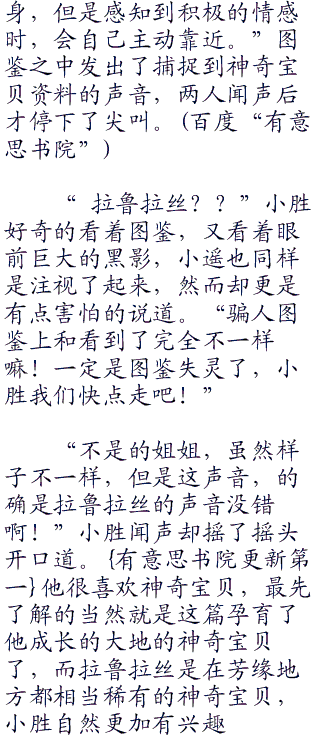 身，但是感知到积极的情感
时，会自己主动靠近。”图
鉴之中发出了捕捉到神奇宝
贝资料的声音，两人闻声后
才停下了尖叫。(百度“有意
思书院”)
“ 拉鲁拉丝？？”小胜
好奇的看着图鉴，又看着眼
前巨大的黑影，小遥也同样
是注视了起来，然而却更是
有点害怕的说道。“骗人图
鉴上和看到了完全不一样
嘛！一定是图鉴失灵了，小
胜我们快点走吧！”
“不是的姐姐，虽然样
子不一样，但是这声音，的
确是拉鲁拉丝的声音没错
啊！”小胜闻声却摇了摇头
开口道。{有意思书院更新第
一}他很喜欢神奇宝贝，最先
了解的当然就是这篇孕育了
他成长的大地的神奇宝贝
了，而拉鲁拉丝是在芳缘地
方都相当稀有的神奇宝贝，
小胜自然更加有兴趣